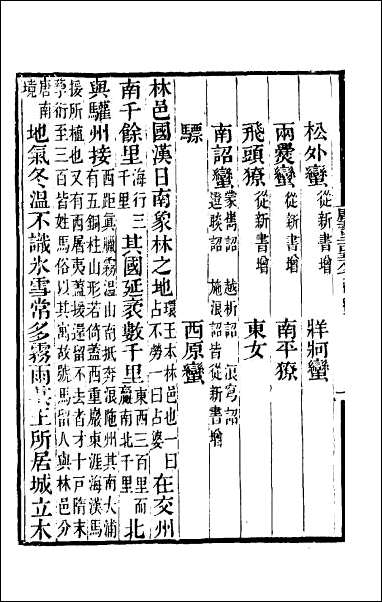 松外蠻從新書增 牂牁蠻
兩爨蠻從新書增 南平獠
飛頭獠從新書增 東女
南詔蠻蒙雋詔 越析詔 浪穹詔
邆睒詔 施浪詔皆從新書增
驃 西原蠻
林邑國漢日南象林之地環王本林邑也一曰占不勞一曰占婆在交州
南千餘里海行三千里其國延袤數千里東西三百里而贏南北千里北
與驩州接西距真臘霧溫山南抵奔浪陁州其南大浦
有五銅柱山形若倚蓋西重巖東涯海漢馬
援所植也又有西屠夷蓋援還留不去者才十戶隋末
孳衍至三百皆姓馬俗以其寓故號馬留人與林邑分
唐南境地氣冬溫不識冰雪常多霧雨其王所居城立木